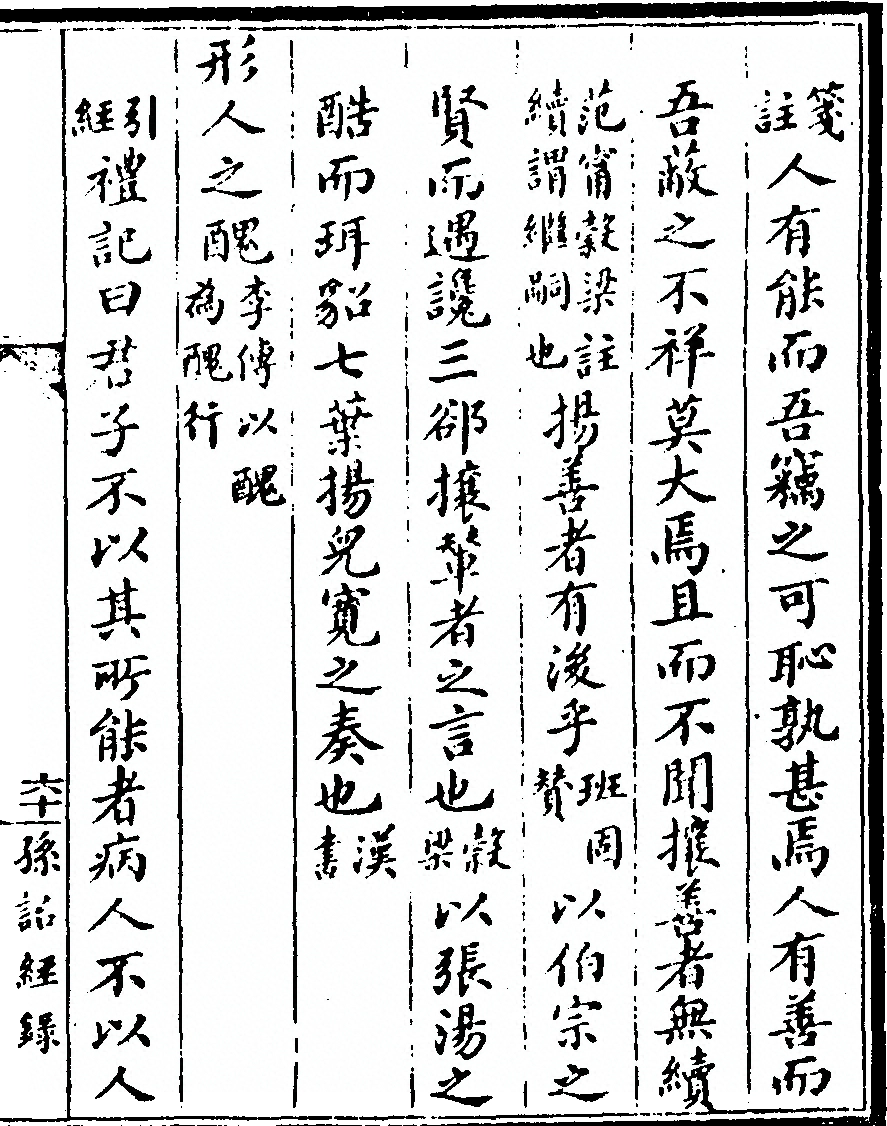 箋註人有能而吾竊之可恥孰甚焉人有善而
吾蔽之不祥莫大焉且而不聞攘善者無續
范甯穀梁註續謂繼嗣也揚善者有後乎班固贊以伯宗之
賢而遇讒三郤攘輦者之言也穀梁以張湯之
酷而珥貂七葉揚兒寬之奏也漢書
形人之醜李傅以醜為醜行
引經禮記曰君子不以其所能者病人不以人
六十
孫詒經錄